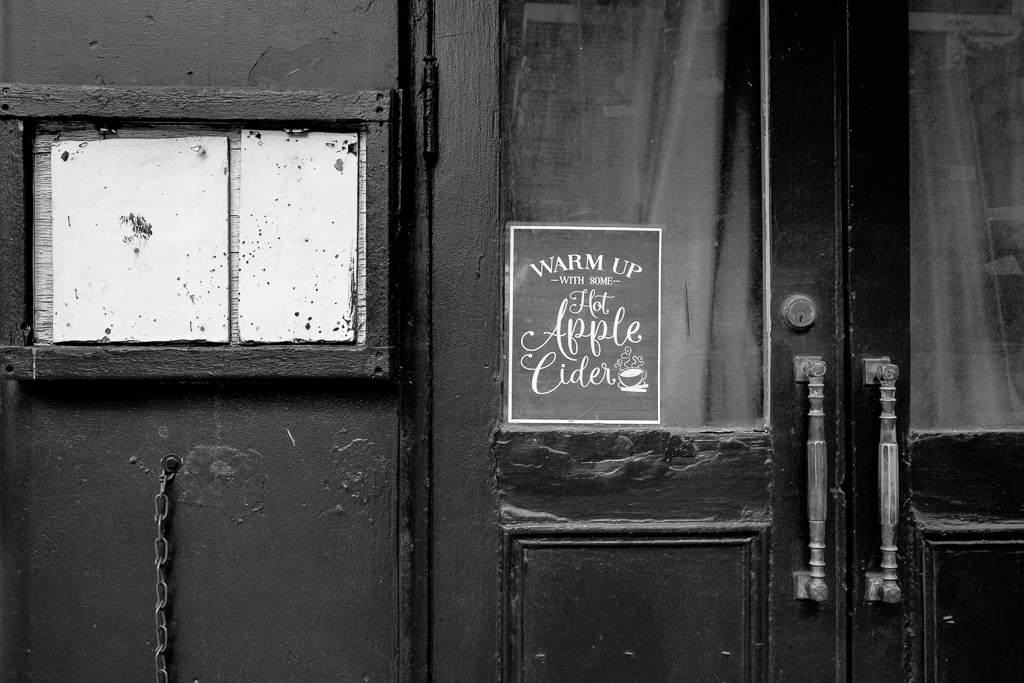 WARM UP
WITH SOME
Hot
Apple
Cider